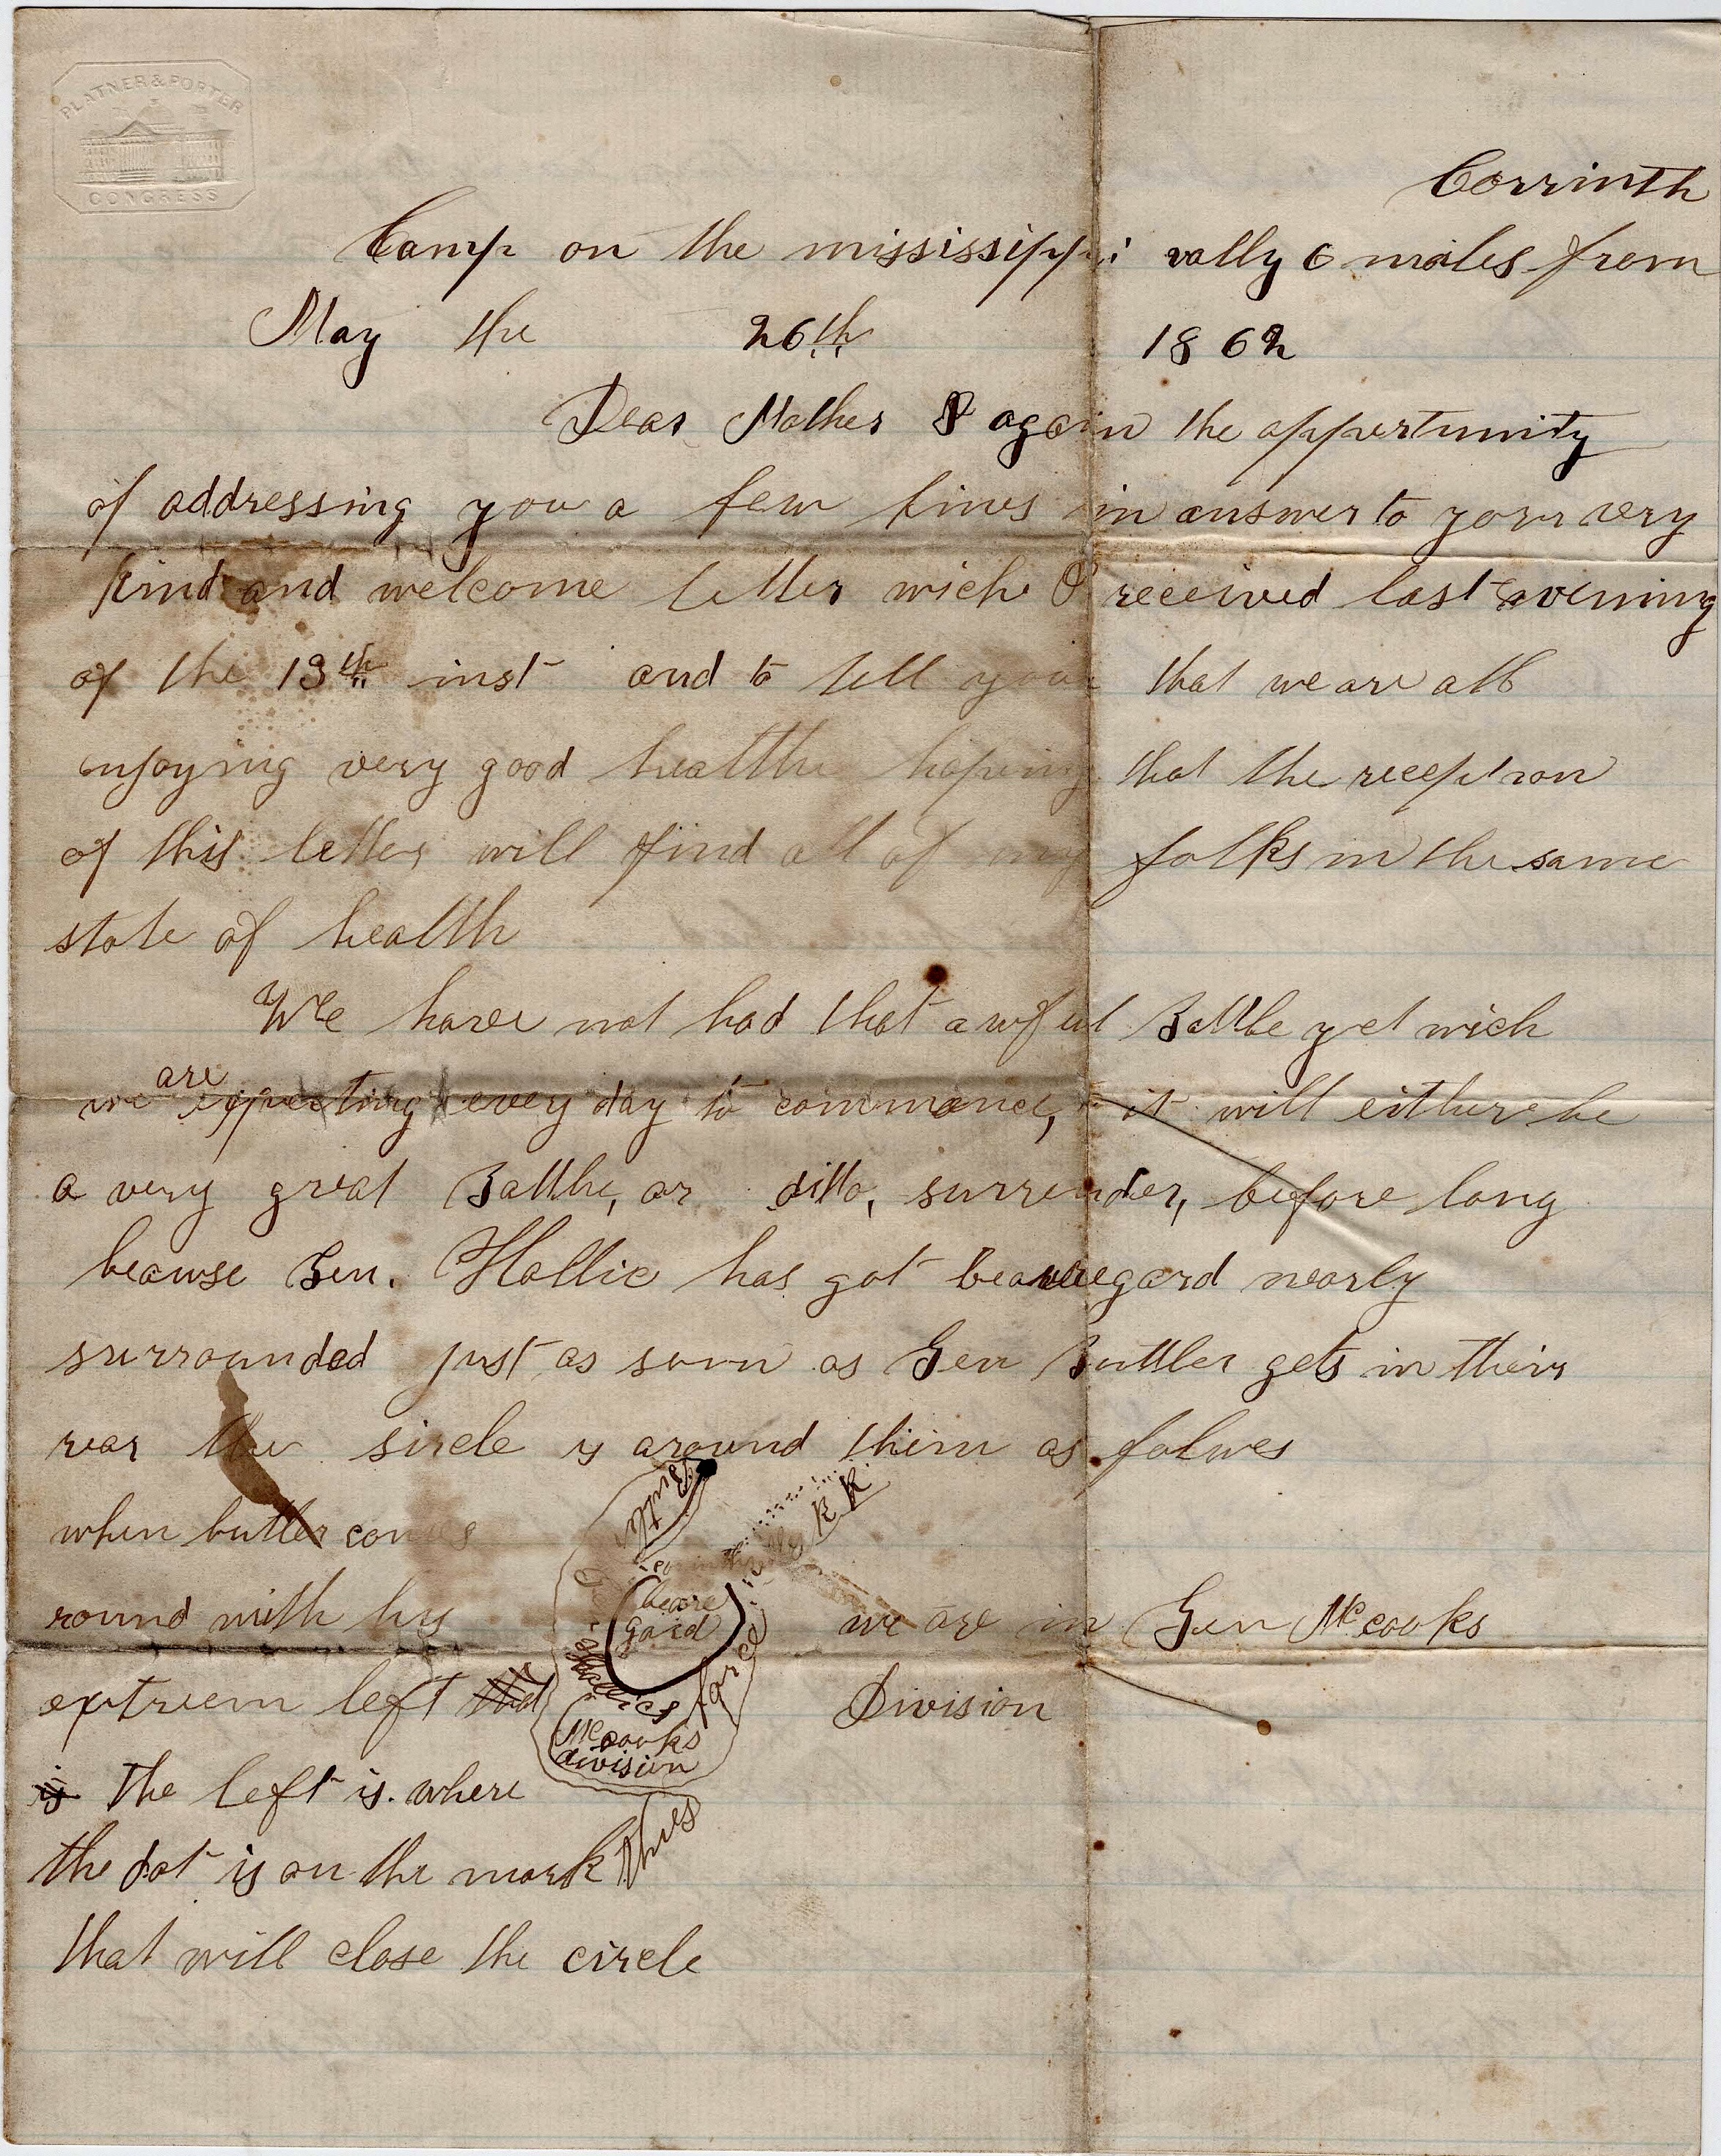 PLATNER & PORTER
CONGRESS
Corrinth
Camp on the mississippi vally 6 miles from
May the 26th 1862
Dear Mother I again the oppertunity
of addressing you a few lines in answer to your very
kind and welcome letter wich I received last evening
of the 13th inst and to tell you that we are all
enjoying very good health hoping that the reception
of this letter will find all of my folks in the same
state of health
We have not had that awful Battle yet wich
we are expecting every day to commance, it will either be
a very great Battle, or ditto, surrender, before long
because Gen. Hallic has got beauregard nearly
surrounded just as soon as Gen Buttler gets in their
rear the sircle is around them as folows
when butler comes
round with his
extreem left
is The left is where
the dot is on the mark thus
that will close the circle
Butler
R R
beaure
gard
Hallics force
McCooks
division
we are in Gen McCooks
Division